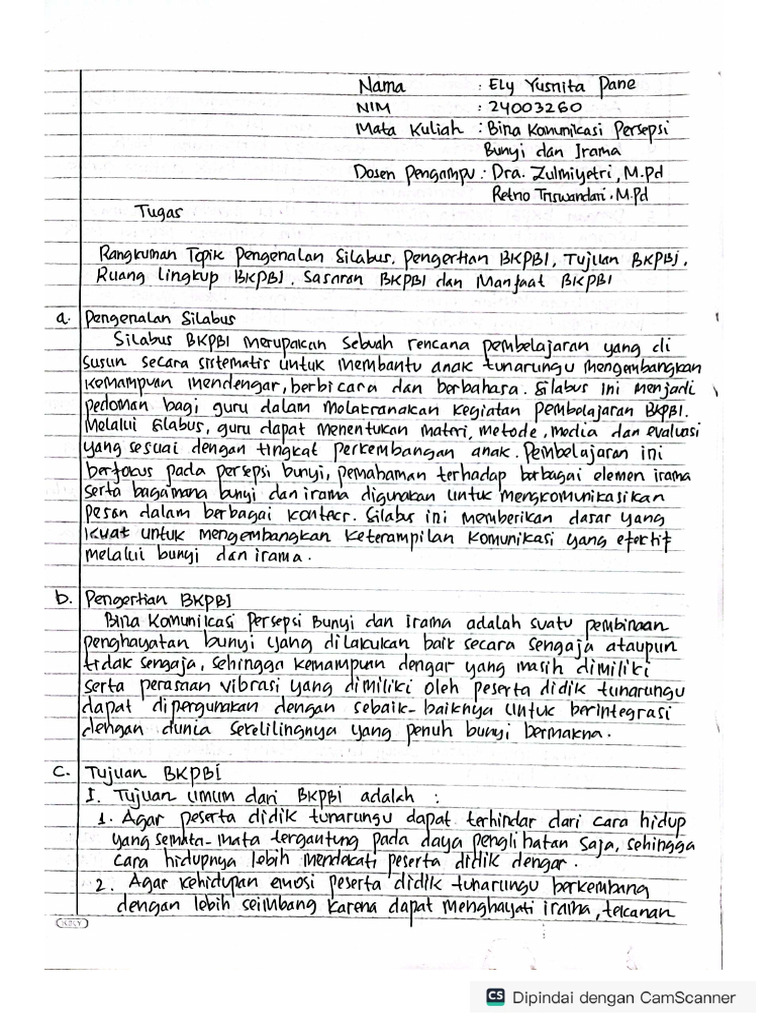 Nama : Ely Yusnita Pane
NIM : 24003260
Mata Kuliah : Bina Komunikasi Persepsi
Bunyi dan Irama
Dosen Pengampu : Dra. Zulmiyetri, M.Pd
Retno Triswandari, M.Pd
Tugas
Rangkuman Topik Pengenalan Silabus, Pengertian BKPBI, Tujuan BKPBI,
Ruang Lingkup BKPBI, Sasaran BKPBI dan Manfaat BKPBI
a. Pengenalan Silabus
Silabus BKPBI merupakan sebuah rencana pembelajaran yang di
susun secara sistematis untuk membantu anak tunarungu mengembangkan
kemampuan mendengar, berbicara dan berbahasa. Silabus ini menjadi
pedoman bagi guru dalam melaksanakan kegiatan pembelajaran BKPBI.
Melalui silabus, guru dapat menentukan materi, metode, media dan evaluasi
yang sesuai dengan tingkat perkembangan anak. Pembelajaran ini
berfokus pada persepsi bunyi, pemahaman terhadap berbagai elemen irama
serta bagaimana bunyi dan irama digunakan untuk mengkomunikasikan
pesan dalam berbagai kontecs. Silabus ini memberikan dasar yang
kuat untuk mengembangkan keterampilan komunikasi yang efektif
melalui bunyi dan irama.
b. Pengertian BKPBI
Bina Komunikasi Persepsi Bunyi dan irama adalah suatu pembinaan
penghayatan bunyi yang dilakukan baik secara sengaja ataupun
tidak sengaja, sehingga kemampuan dengar yang masih dimiliki
serta perasaan vibrasi yang dimiliki oleh peserta didik tunarungu
dapat dipergunakan dengan sebaik-baiknya untuk berintegrasi
dengan dunia sekelilingnya yang penuh bunyi bermakna.
c. Tujuan BKPBI
I. Tujuan umum dari BKPBI adalah :
1. Agar peserta didik tunarungu dapat terhindar dari cara hidup
yang semata-mata tergantung pada daya penglihatan saja, sehingga
cara hidupnya lebih mendekati peserta didik dengar.
2. Agar kehidupan emosi peserta didik tunarungu berkembang
dengan lebih seimbang karena dapat menghayati irama, tekanan
KIKY
CS Dipindai dengan CamScanner